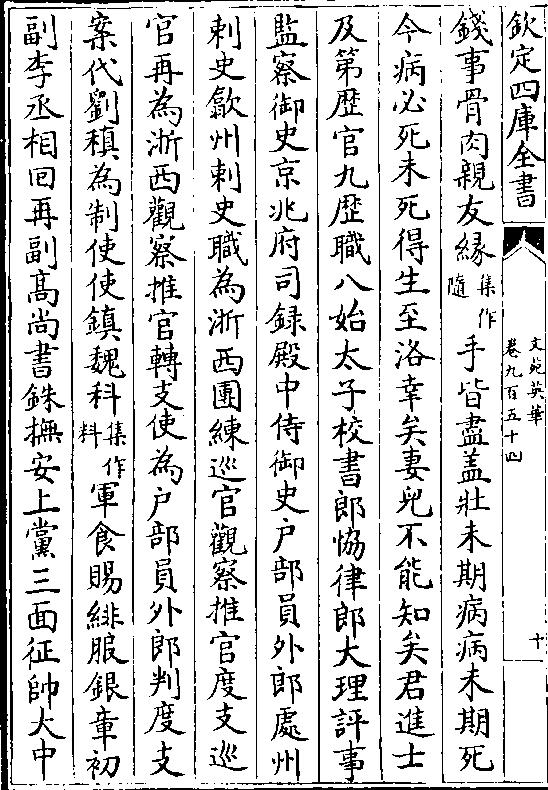 欽定四庫全書
文苑英華
卷九百五十四
十
錢事骨肉親友緣集作隨手皆盡蓋壯未期病病未期死
今病必死未死得生至洛幸矣妻兒不能知矣君進士
及第歴官九歴職八始太子校書郎恊律郎大理評事
監察御史京兆府司録殿中侍御史户部員外郎處州
刺史歙州刺史職為浙西團練巡官觀察推官度支巡
官再為浙西觀察推官轉支使為户部員外郎判度支
案代劉稹為制使使鎮魏科集作料軍食賜緋服銀章初
副李丞相回再副髙尚書銖撫安上黨三面征帥大中